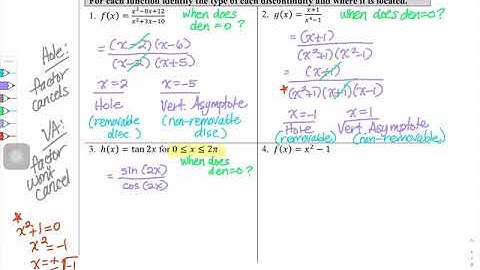 For each function identify the type of each discontinuity and where it is located.
1. f(x) = (x²−8x+12)/(x²+3x−10) when does den = 0?
= (x−2)(x−6)/(x−2)(x+5)
x=2 x=−5
Hole Vert. Asymptote
(removable disc.) (non-removable disc.)
2. g(x) = (x+1)/(x⁴−1) when does den=0?
= (x+1)/(x²+1)(x²−1)
= (x+1)/(x²+1)(x+1)(x−1)
*
x=−1 x=1
Hole Vert. Asymptote
(removable) (non-removable)
3. h(x) = tan 2x for 0 ≤ x ≤ 2π when does den=0?
= sin(2x)/cos(2x)
4. f(x) = x² − 1
Hole:
Factor
cancels
VA:
Factor
won't
cancel
*
x²+1=0
x²=−1
x=±√−1